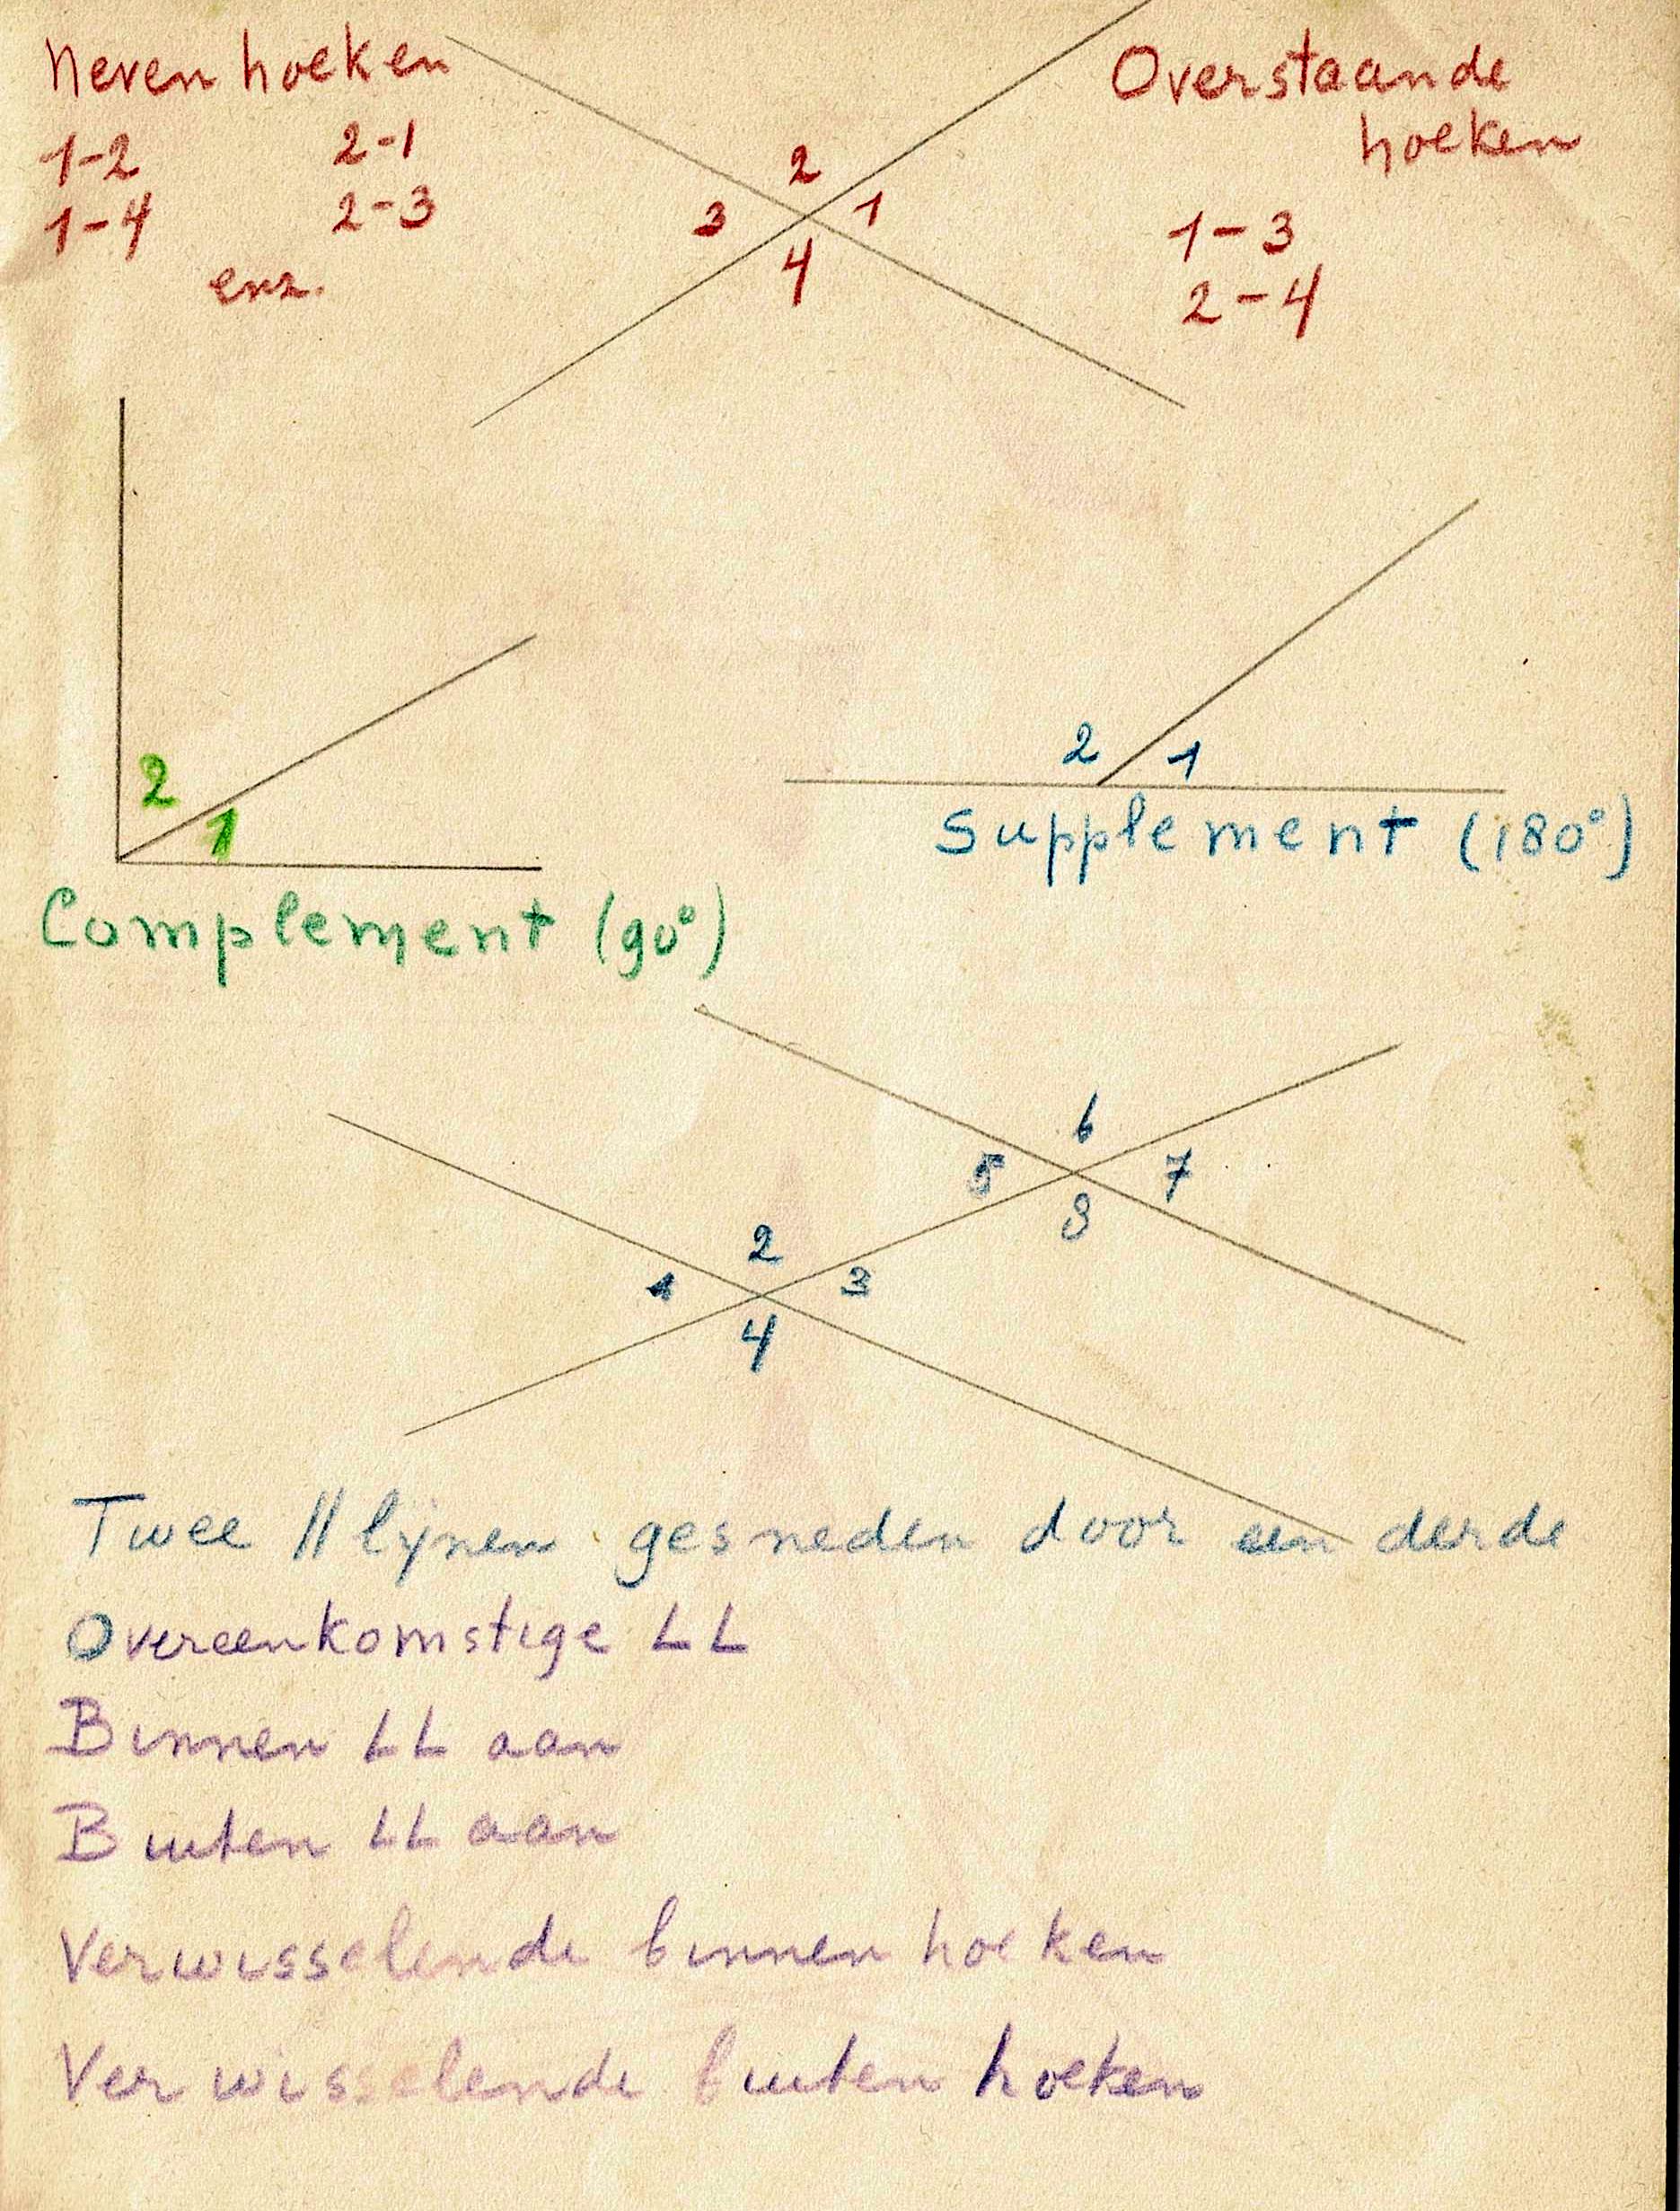 Nevenhoeken
1-2 2-1
1-4 2-3
enz.
2
3 1
4
Overstaande
hoeken
1-3
2-4
2
1
Complement (90°)
2 1
Supplement (180°)
6
5 7
8
2
1 3
4
Twee // lijnen gesneden door een derde
Overeenkomstige LL
Binnen LL aan
Buiten LL aan
Verwisselende binnen hoeken
Verwisselende buiten hoeken